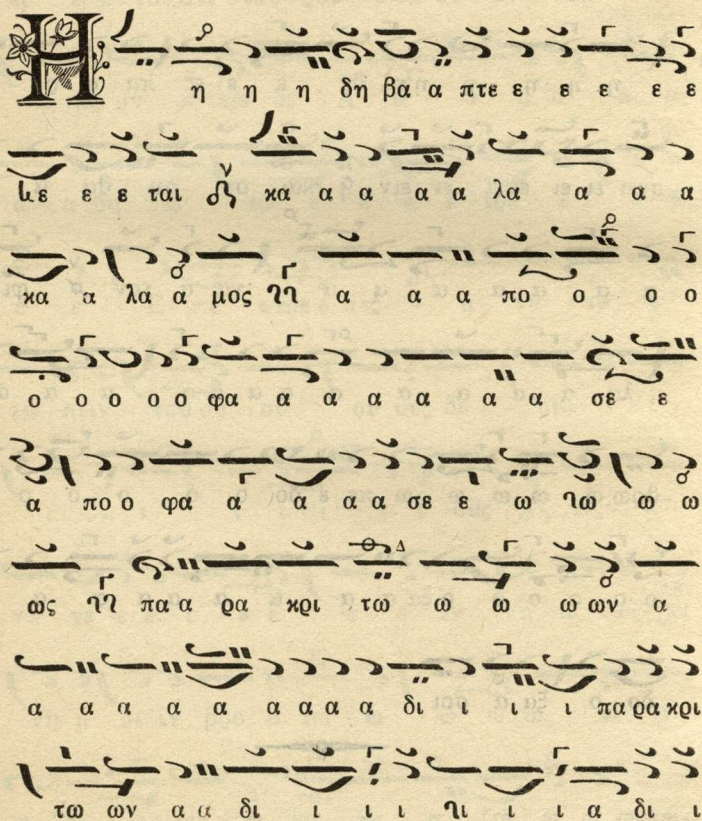 Η η η η δη βα α πτε ε ε ε ε ε
ε ε ε ται κα α α α α λα α α α
κα α λα α μος α α α πο ο ο ο
ο ο ο ο ο φα α α α α α α α σε ε
α πο ο φα α α α α σε ε ω ω ω ω
ως πα α ρα κρι τω ω ω ω ων α
α α α α α α α α α δι ι ι ι πα ρα κρι
τω ων α α δι ι ι ι ι ι ι α δι ι